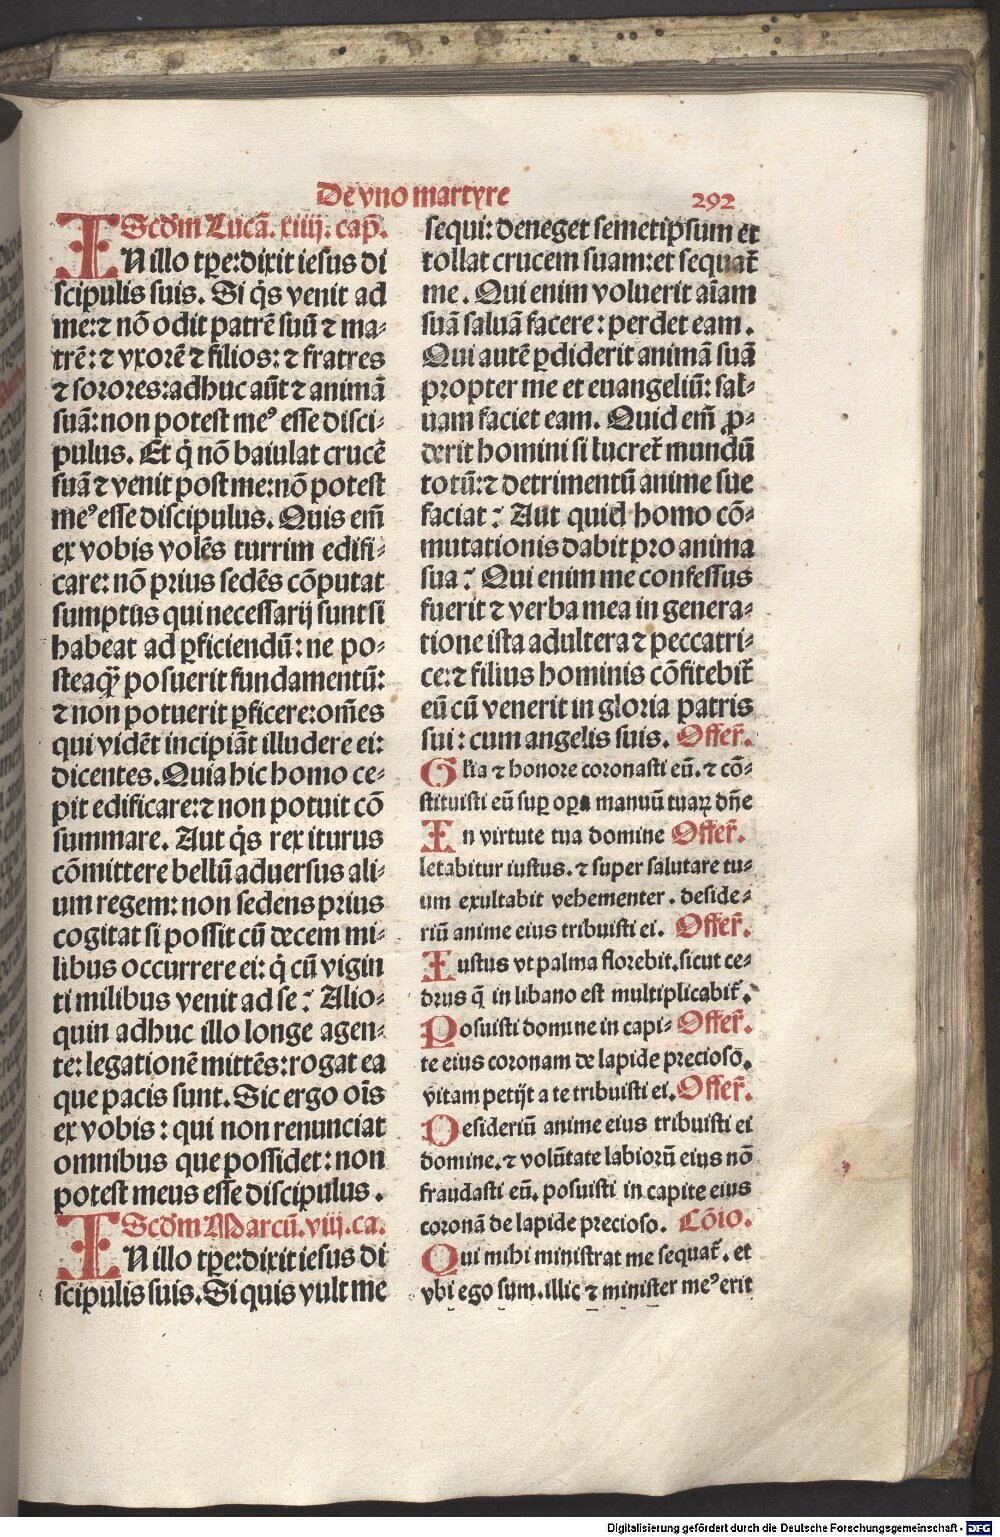 De vno martyre
292
Scdm̄ Lucā. xiiij. cap̄.
IN illo tp̄e: dixit iesus di
scipulis suis. Si q̇s venit ad
me: ⁊ nō odit patrē suū ⁊ ma⸗
trē: ⁊ vxorē ⁊ filios: ⁊ fratres
⁊ sorores: adhuc aūt ⁊ animā
suā: non potest meꝰ esse disci⸗
pulus. Et q̇ nō baiulat crucē
suā ⁊ venit post me: nō potest
meꝰ esse discipulus. Quis em̄
ex vobis volēs turrim edifi⸗
care: nō prius sedēs cōputat
sumptus qui necessarij sunt si
habeat ad ꝑficiendū: ne po⸗
steaqȝ posuerit fundamentū:
⁊ non potuerit ꝑficere: om̄es
qui vidēt incipiāt illudere ei:
dicentes. Quia hic homo ce⸗
pit edificare: ⁊ non potuit cō
summare. Aut q̇s rex iturus
cōmittere bellū aduersus ali⸗
um regem: non sedens prius
cogitat si possit cū decem mi⸗
libus occurrere ei: q̇ cū vigin
ti milibus venit ad se? Alio⸗
quin adhuc illo longe agen⸗
te: legationē mittēs: rogat ea
que pacis sunt. Sic ergo oīs
ex vobis: qui non renunciat
omnibus que possidet: non
potest meus esse discipulus.
Scdm̄ Marcū. viij. ca.
IN illo tp̄e: dixit iesus di
scipulis suis. Si quis vult me
sequi: deneget semetipsum et
tollat crucem suam: et sequat᷑
me. Qui enim voluerit aīam
suā saluā facere: perdet eam.
Qui autē ꝑdiderit animā suā
propter me et euangeliū: sal⸗
uam faciet eam. Quid em̄ ꝓ⸗
derit homini si lucret᷑ mundū
totū: ⁊ detrimentū anime sue
faciat? Aut quid homo cō⸗
mutationis dabit pro anima
sua? Qui enim me confessus
fuerit ⁊ verba mea in genera⸗
tione ista adultera ⁊ peccatri⸗
ce: ⁊ filius hominis cōfitebit᷑
eū cū venerit in gloria patris
sui: cum angelis suis. Offer̄.
Gl̄ia ⁊ honore coronasti eū. ⁊ cō⸗
stituisti eū suꝑ oꝑa manuū tuaꝝ dn̄e
In virtute tua domine Offer̄.
letabitur iustus. ⁊ super salutare tu⸗
um exultabit vehementer. deside⸗
riū anime eius tribuisti ei. Offer̄.
Iustus vt palma florebit. sicut ce⸗
drus q̄ in libano est multiplicabit᷑.
Posuisti domine in capi⸗ Offer̄.
te eius coronam de lapide precioso.
vitam petijt a te tribuisti ei. Offer̄.
Desideriū anime eius tribuisti ei
domine. ⁊ volūtate labiorū eius nō
fraudasti eū. posuisti in capite eius
coronā de lapide precioso. Cōio.
Qui mihi ministrat me sequat᷑. et
vbi ego sum. illic ⁊ minister meꝰ erit
Digitalisierung gefördert durch die Deutsche Forschungsgemeinschaft - DFG